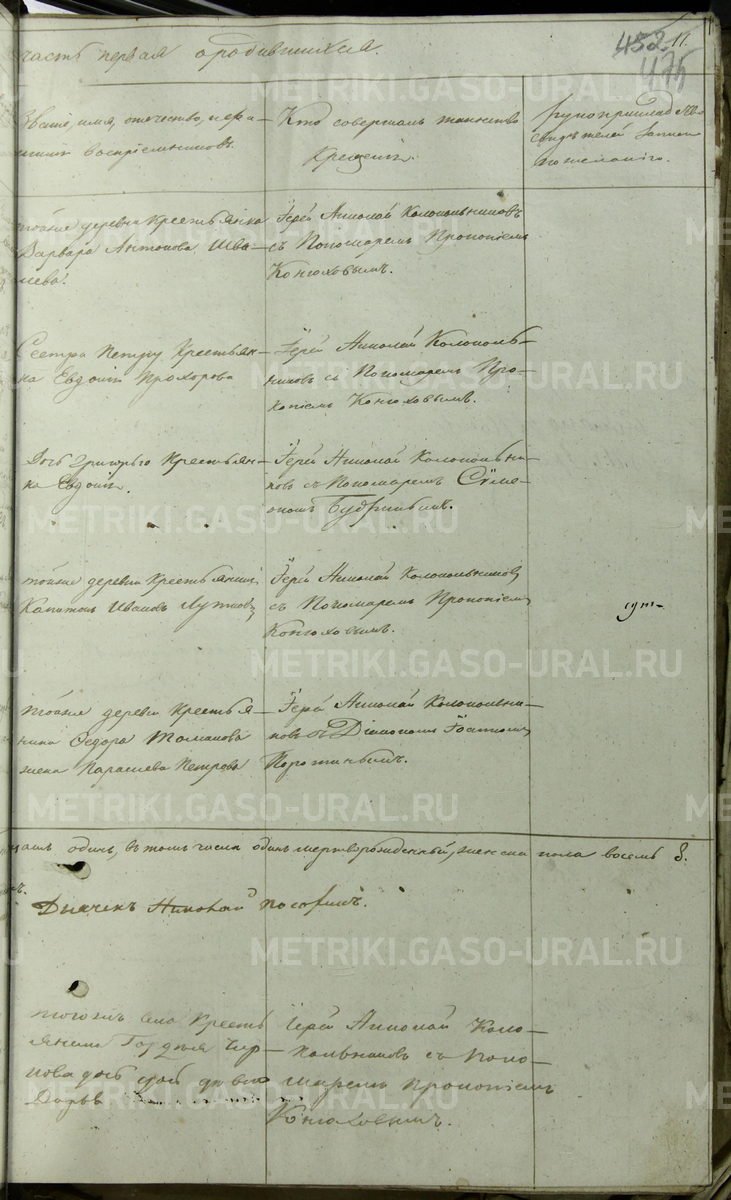 452 11
475
часть первая о родившихся.
Званіе, имя, отчество, и фа-
миліи воспріемниковъ.
Кто совершалъ таинство
Крещенія.
Рукоприкладство
свидѣтелей записи
по желанію.
тойже деревни Крестьянка
Варвара Антонова Шва-
лева.
Іерей Николай Колокольниковъ
съ Пономаремъ Прокопіемъ
Конюховымъ.
Сестра Петру Крестьян-
ка Евдокія Прохорова
Іерей Николай Колоколь-
никовъ съ Пономаремъ Про-
копіемъ Конюховымъ.
Дочь Григорью Крестьян-
ка Евдокія.
Іерей Николай Колокольни-
ковъ съ Пономаремъ Симе-
ономъ
тойже деревни Крестьянинъ
Капитонъ Ивановъ
Іерей Николай Колокольниковъ
съ Пономаремъ Прокопіемъ
Конюховымъ.
тойже деревни Крестья-
нина Федора Томанова
жена Параскева Петрова
Іерей Николай Колокольни-
ковъ съ Діакономъ Іоанномъ
Коротичевымъ.
одинъ, въ томъ числѣ одинъ мертворожденный, женска пола восемь 8.
Дьячекъ Николай
тогожъ села Кресть
янина Гордѣя
дочь
Дарья
Іерей Николай Коло-
кольниковъ съ Поно-
маремъ Прокопіемъ
Конюховымъ.
METRIKI.GASO-URAL.RU